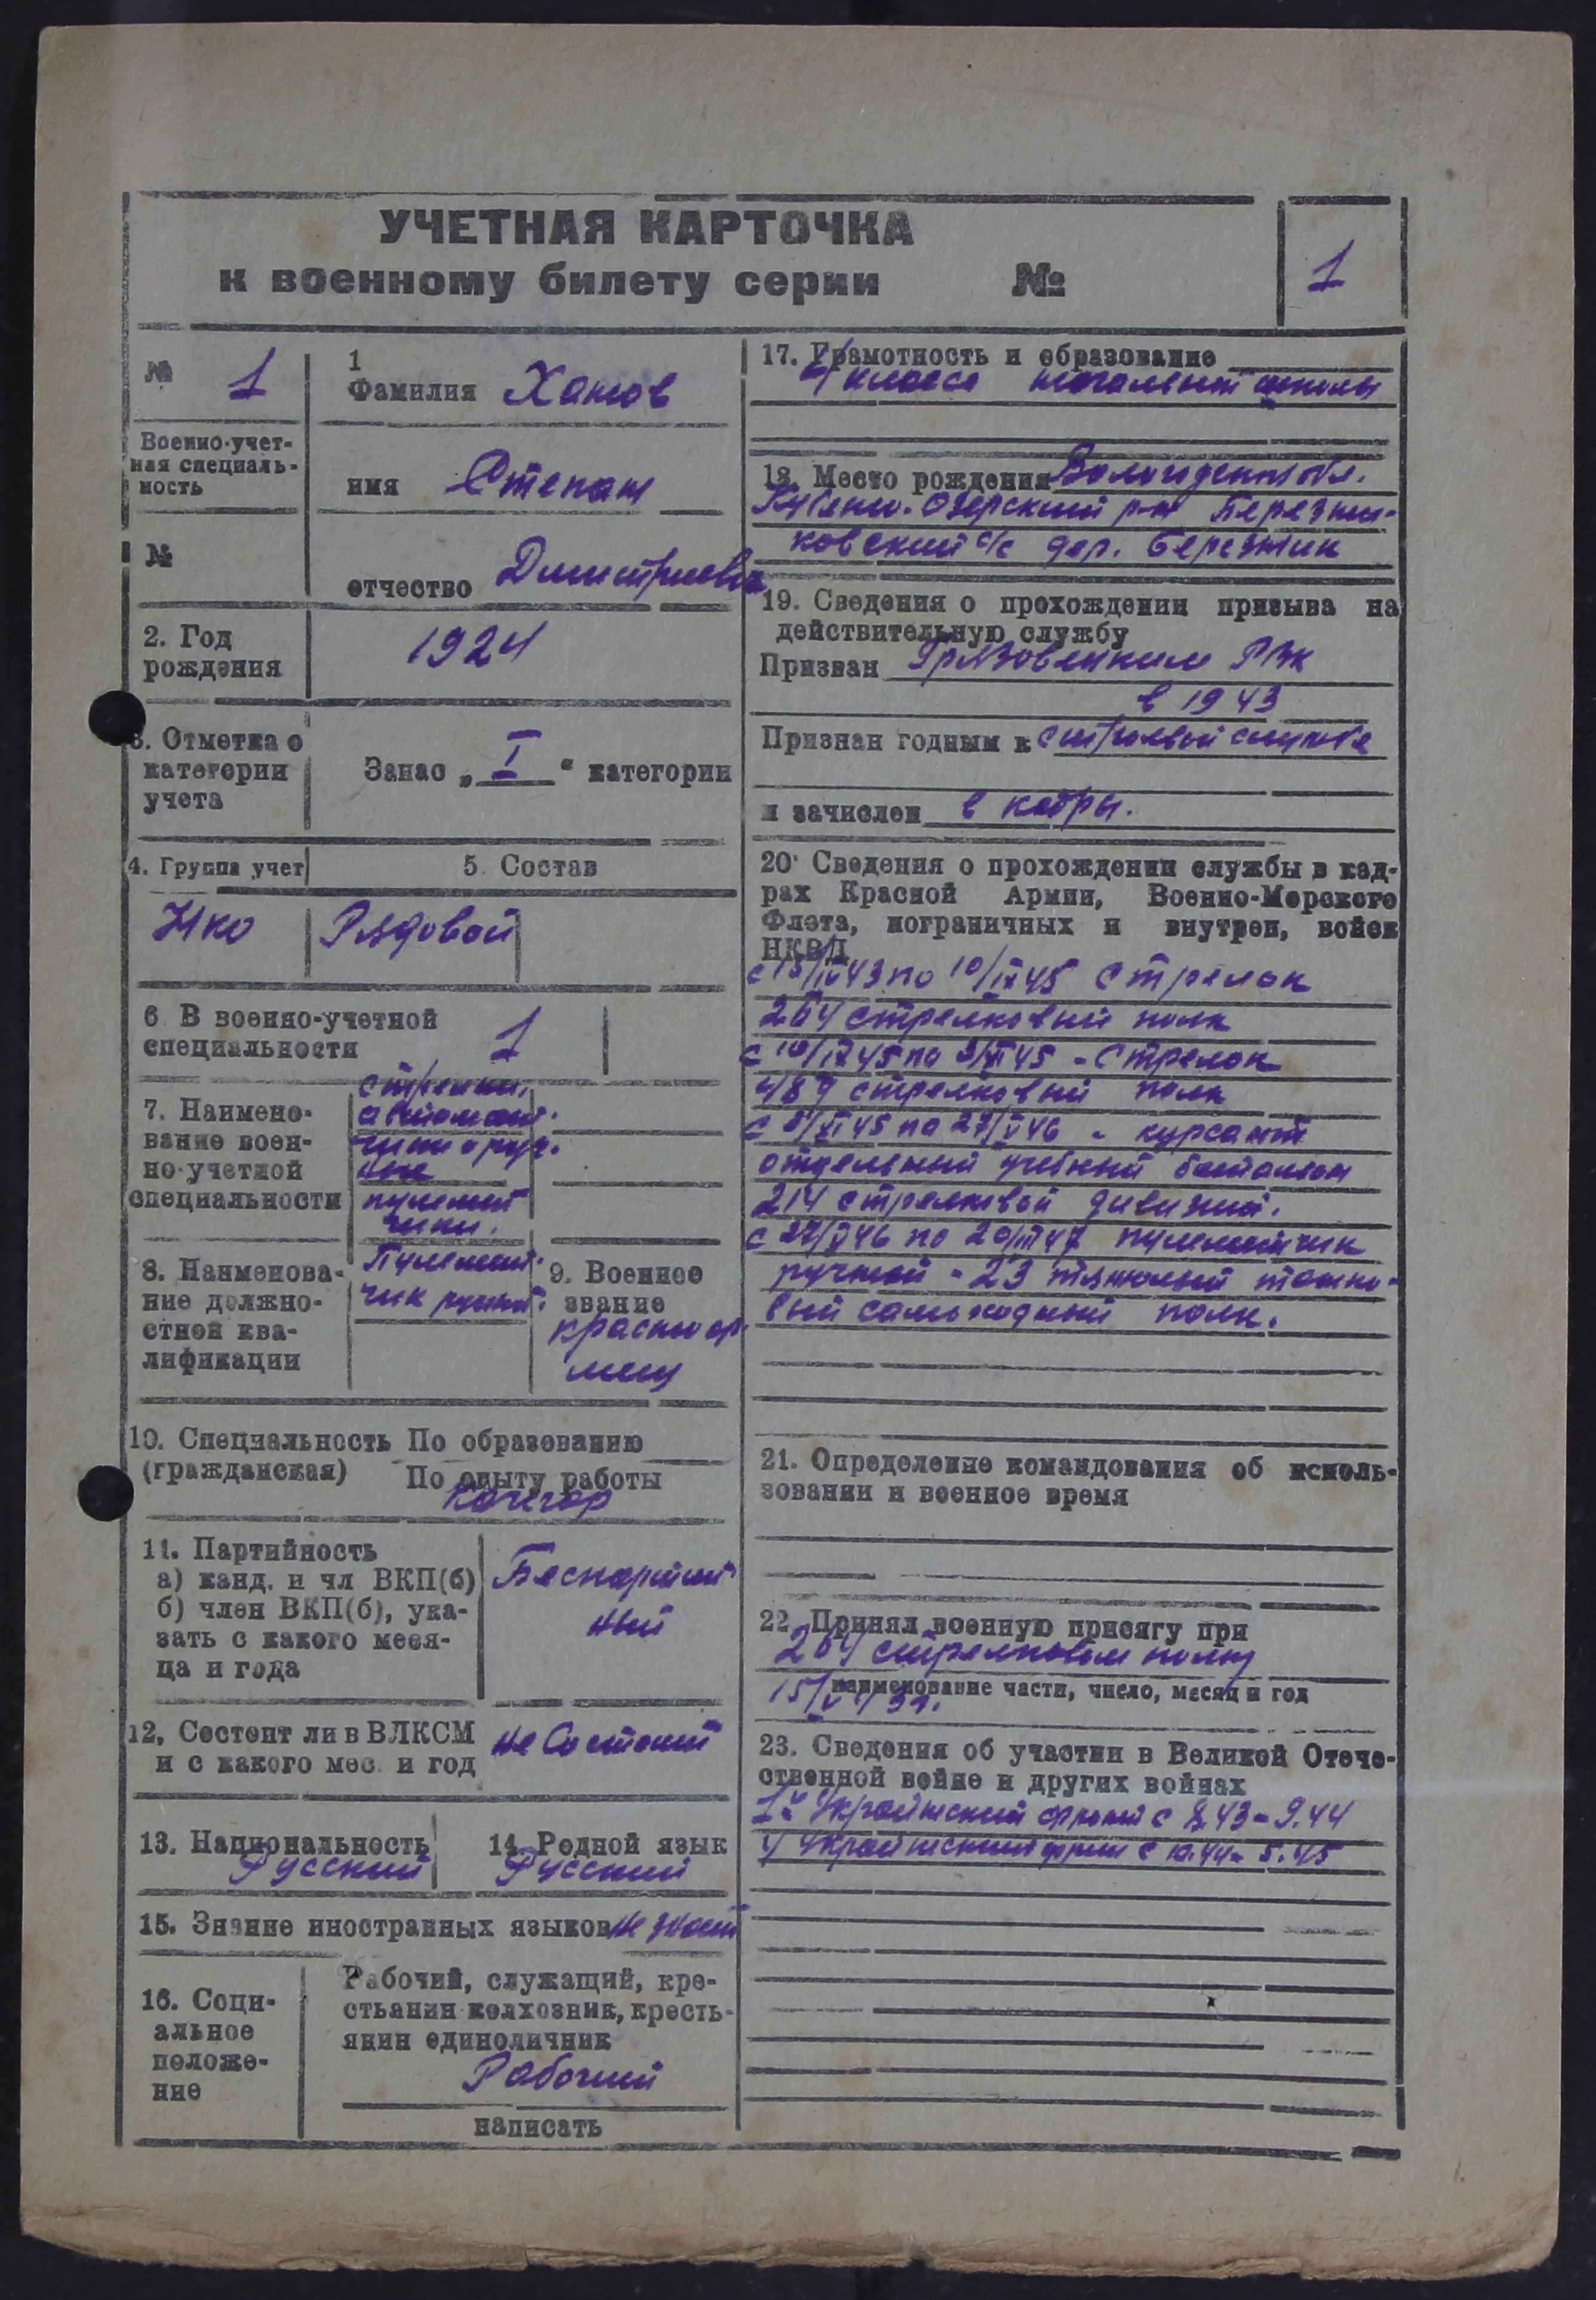 УЧЕТНАЯ КАРТОЧКА
к военному билету серии №
1
№ 1
Военно-учет-
ная специаль-
ность
№
1
Фамилия Хамов
имя Степан
отчество Дмитриевич
2. Год
рождения
1924
3. Отметка о
категории
учета
Запас „ I “ категории
4. Группа учет
5. Состав
Рядовой
6 В военно-учетной
специальности
1
7. Наимено-
вание воен-
но-учетной
специальности
стрелки,
автомат-
чики и руч-
ные
пулемет
чики.
8. Наименова-
ние должно-
стной ква-
лификации
Пулемет-
чик ручной.
9. Военное
звание
красноар-
меец
10. Специальность По образованию
(гражданская) По опыту работы
Кочегар
11. Партийность
а) канд. и чл ВКП(б)
б) член ВКП(б), ука-
зать с какого меся-
ца и года
Беспартий
ный
12. Состоит ли в ВЛКСМ
и с какого мес. и год
не Состоит
13. Национальность
Русский
14. Родной язык
Русский
15. Знание иностранных языков не знает
16. Соци-
альное
положе-
ние
Рабочий, служащий, кре-
стьянин-колхозник, кресть-
янин единоличник
Рабочий
написать
17. Грамотность и образование
4 класса начальной школы
18. Место рождения Вологодская обл.
Кубено-Озерский р-н Березни-
ковский с/с дер. Березник
19. Сведения о прохождении призыва на
действительную службу
Призван Грязовецким РВК
в 1943
Признан годным к строевой службе
и зачислен в кадры.
20. Сведения о прохождении службы в кад-
рах Красной Армии, Военно-Морского
Флота, пограничных и внутрен, войск
НКВД
с 15/IV 43 по 10/IX 45 стрелок
264 стрелковый полк
с 10/IX 45 по 5/XI 45 - Стрелок
489 стрелковый полк
с 5/XI 45 по 27/V 46 - курсант
отдельный учебный батальон
214 стрелковой дивизии.
с 27/V 46 по 20/III 47 пулеметчик
ручной - 23 тяжелый танко-
вый самоходный полк.
21. Определение командования об исполь-
зовании и военное время
22. Принял военную присягу при
264 стрелковом полку
наименование части, число, месяц и год
23. Сведения об участии в Великой Отече-
ственной войне и других войнах
1й Украинский фронт с 8.43 - 9.44
4 Украинский фрон с 10.44 - 5.45